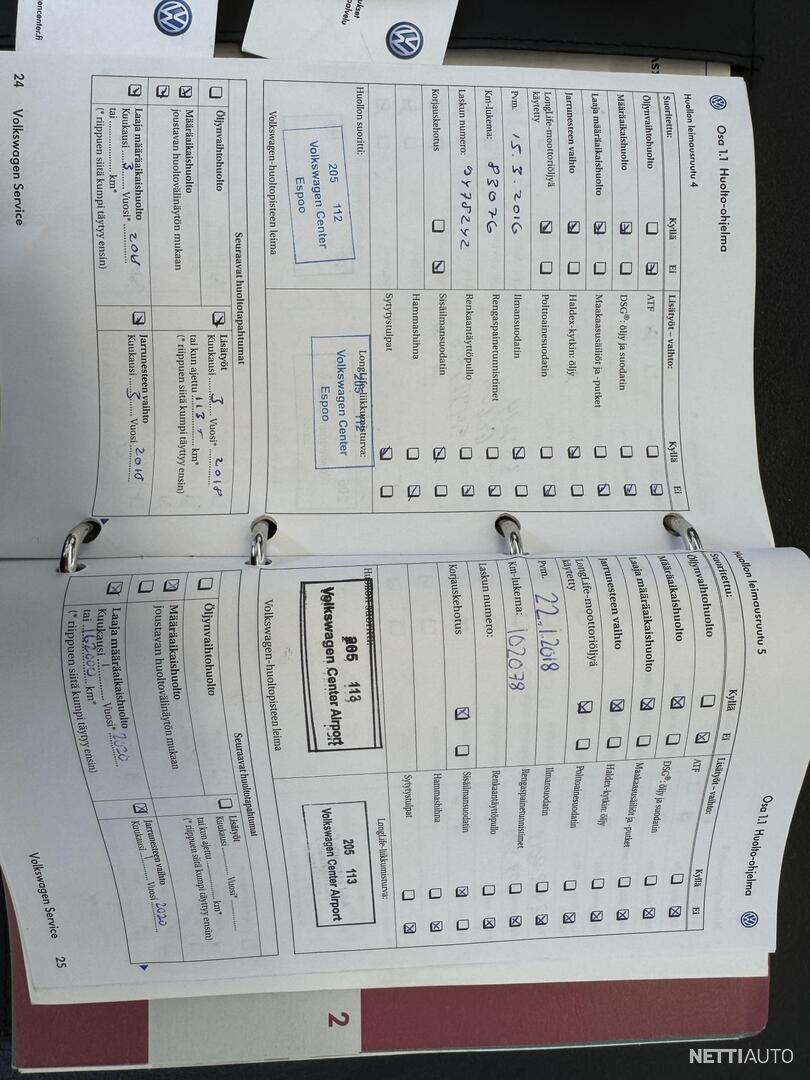 encenter.fi
ukset
palvelu
Osa 1.1 Huolto-ohjelma
Huollon leimausruutu 4
Suoritettu: Kyllä Ei Lisätyöt – vaihto: Kyllä Ei
Öljynvaihtohuolto ATF
Määräaikaishuolto DSG®: öljy ja suodatin
Laaja määräaikaishuolto Maakaasusäiliöt ja -putket
Jarrunesteen vaihto Haldex-kytkin: öljy
LongLife-moottoriöljyä käytetty Polttoainesuodatin
Pvm. 15.3.2016 Ilmansuodatin
Km-lukema: 83076 Rengaspainetunnistimet
Laskun numero: 9478242 Renkaantäyttöpullo
Korjauskehotus Sisäilmansuodatin
Hammashihna
Sytytystulpat
Huollon suoritti: LongLife-liikkumisturva:
205 112
Volkswagen Center
Espoo
205 112
Volkswagen Center
Espoo
Volkswagen-huoltopisteen leima
Seuraavat huoltotapahtumat
Öljynvaihtohuolto
Määräaikaishuolto
joustavan huoltovälinäytön mukaan
Laaja määräaikaishuolto
Kuukausi 3 Vuosi*
tai km*
(* riippuen siitä kumpi täytyy ensin)
Lisätyöt
Kuukausi 3 Vuosi* 2018
tai kun ajettu km*
(* riippuen siitä kumpi täytyy ensin)
Jarrunesteen vaihto
Kuukausi 3 Vuosi 2018
24 Volkswagen Service
Osa 1.1 Huolto-ohjelma
Huollon leimausruutu 5
Suoritettu: Kyllä Ei Lisätyöt – vaihto: Kyllä Ei
Öljynvaihtohuolto ATF
Määräaikaishuolto DSG®: öljy ja suodatin
Laaja määräaikaishuolto Maakaasusäiliöt ja -putket
Jarrunesteen vaihto Haldex-kytkin: öljy
LongLife-moottoriöljyä käytetty Polttoainesuodatin
Pvm. 22.1.2018 Ilmansuodatin
Km-lukema: 102078 Rengaspainetunnistimet
Laskun numero: Renkaantäyttöpullo
Korjauskehotus Sisäilmansuodatin
Hammashihna
Sytytystulpat
Huollon suoritti: LongLife-liikkumisturva:
205 113
Volkswagen Center Airport
205 113
Volkswagen Center Airport
Volkswagen-huoltopisteen leima
Seuraavat huoltotapahtumat
Öljynvaihtohuolto
Määräaikaishuolto
joustavan huoltovälinäytön mukaan
Laaja määräaikaishuolto
Kuukausi 1 Vuosi* 2020
tai 162000 km*
(* riippuen siitä kumpi täytyy ensin)
Lisätyöt
Kuukausi Vuosi*
tai kun ajettu km*
(* riippuen siitä kumpi täytyy ensin)
Jarrunesteen vaihto
Kuukausi 1 Vuosi 2020
Volkswagen Service 25
2
NETTIAUTO